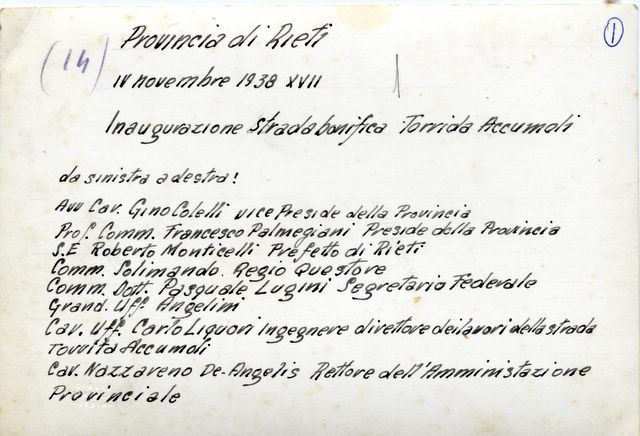 (14)
Provincia di Rieti
1
IV novembre 1938 XVII
Inaugurazione strada bonifica Torrida Accumoli
da sinistra a destra!
Avv Cav. Gino Colelli vice Preside della Provincia
Prof. Comm. Francesco Palmegiani Preside della Provincia
S.E Roberto Monticelli Prefetto di Rieti
Comm. Solimando. Regio Questore
Comm. Dott. Pasquale Lugini Segretario Federale
Grand. Uff. Angelini
Cav. Uff. Carlo Liquori ingegnere direttore dei lavori della strada
Torrita Accumoli
Cav. Nazzareno De-Angelis Rettore dell'Amministazione
Provinciale